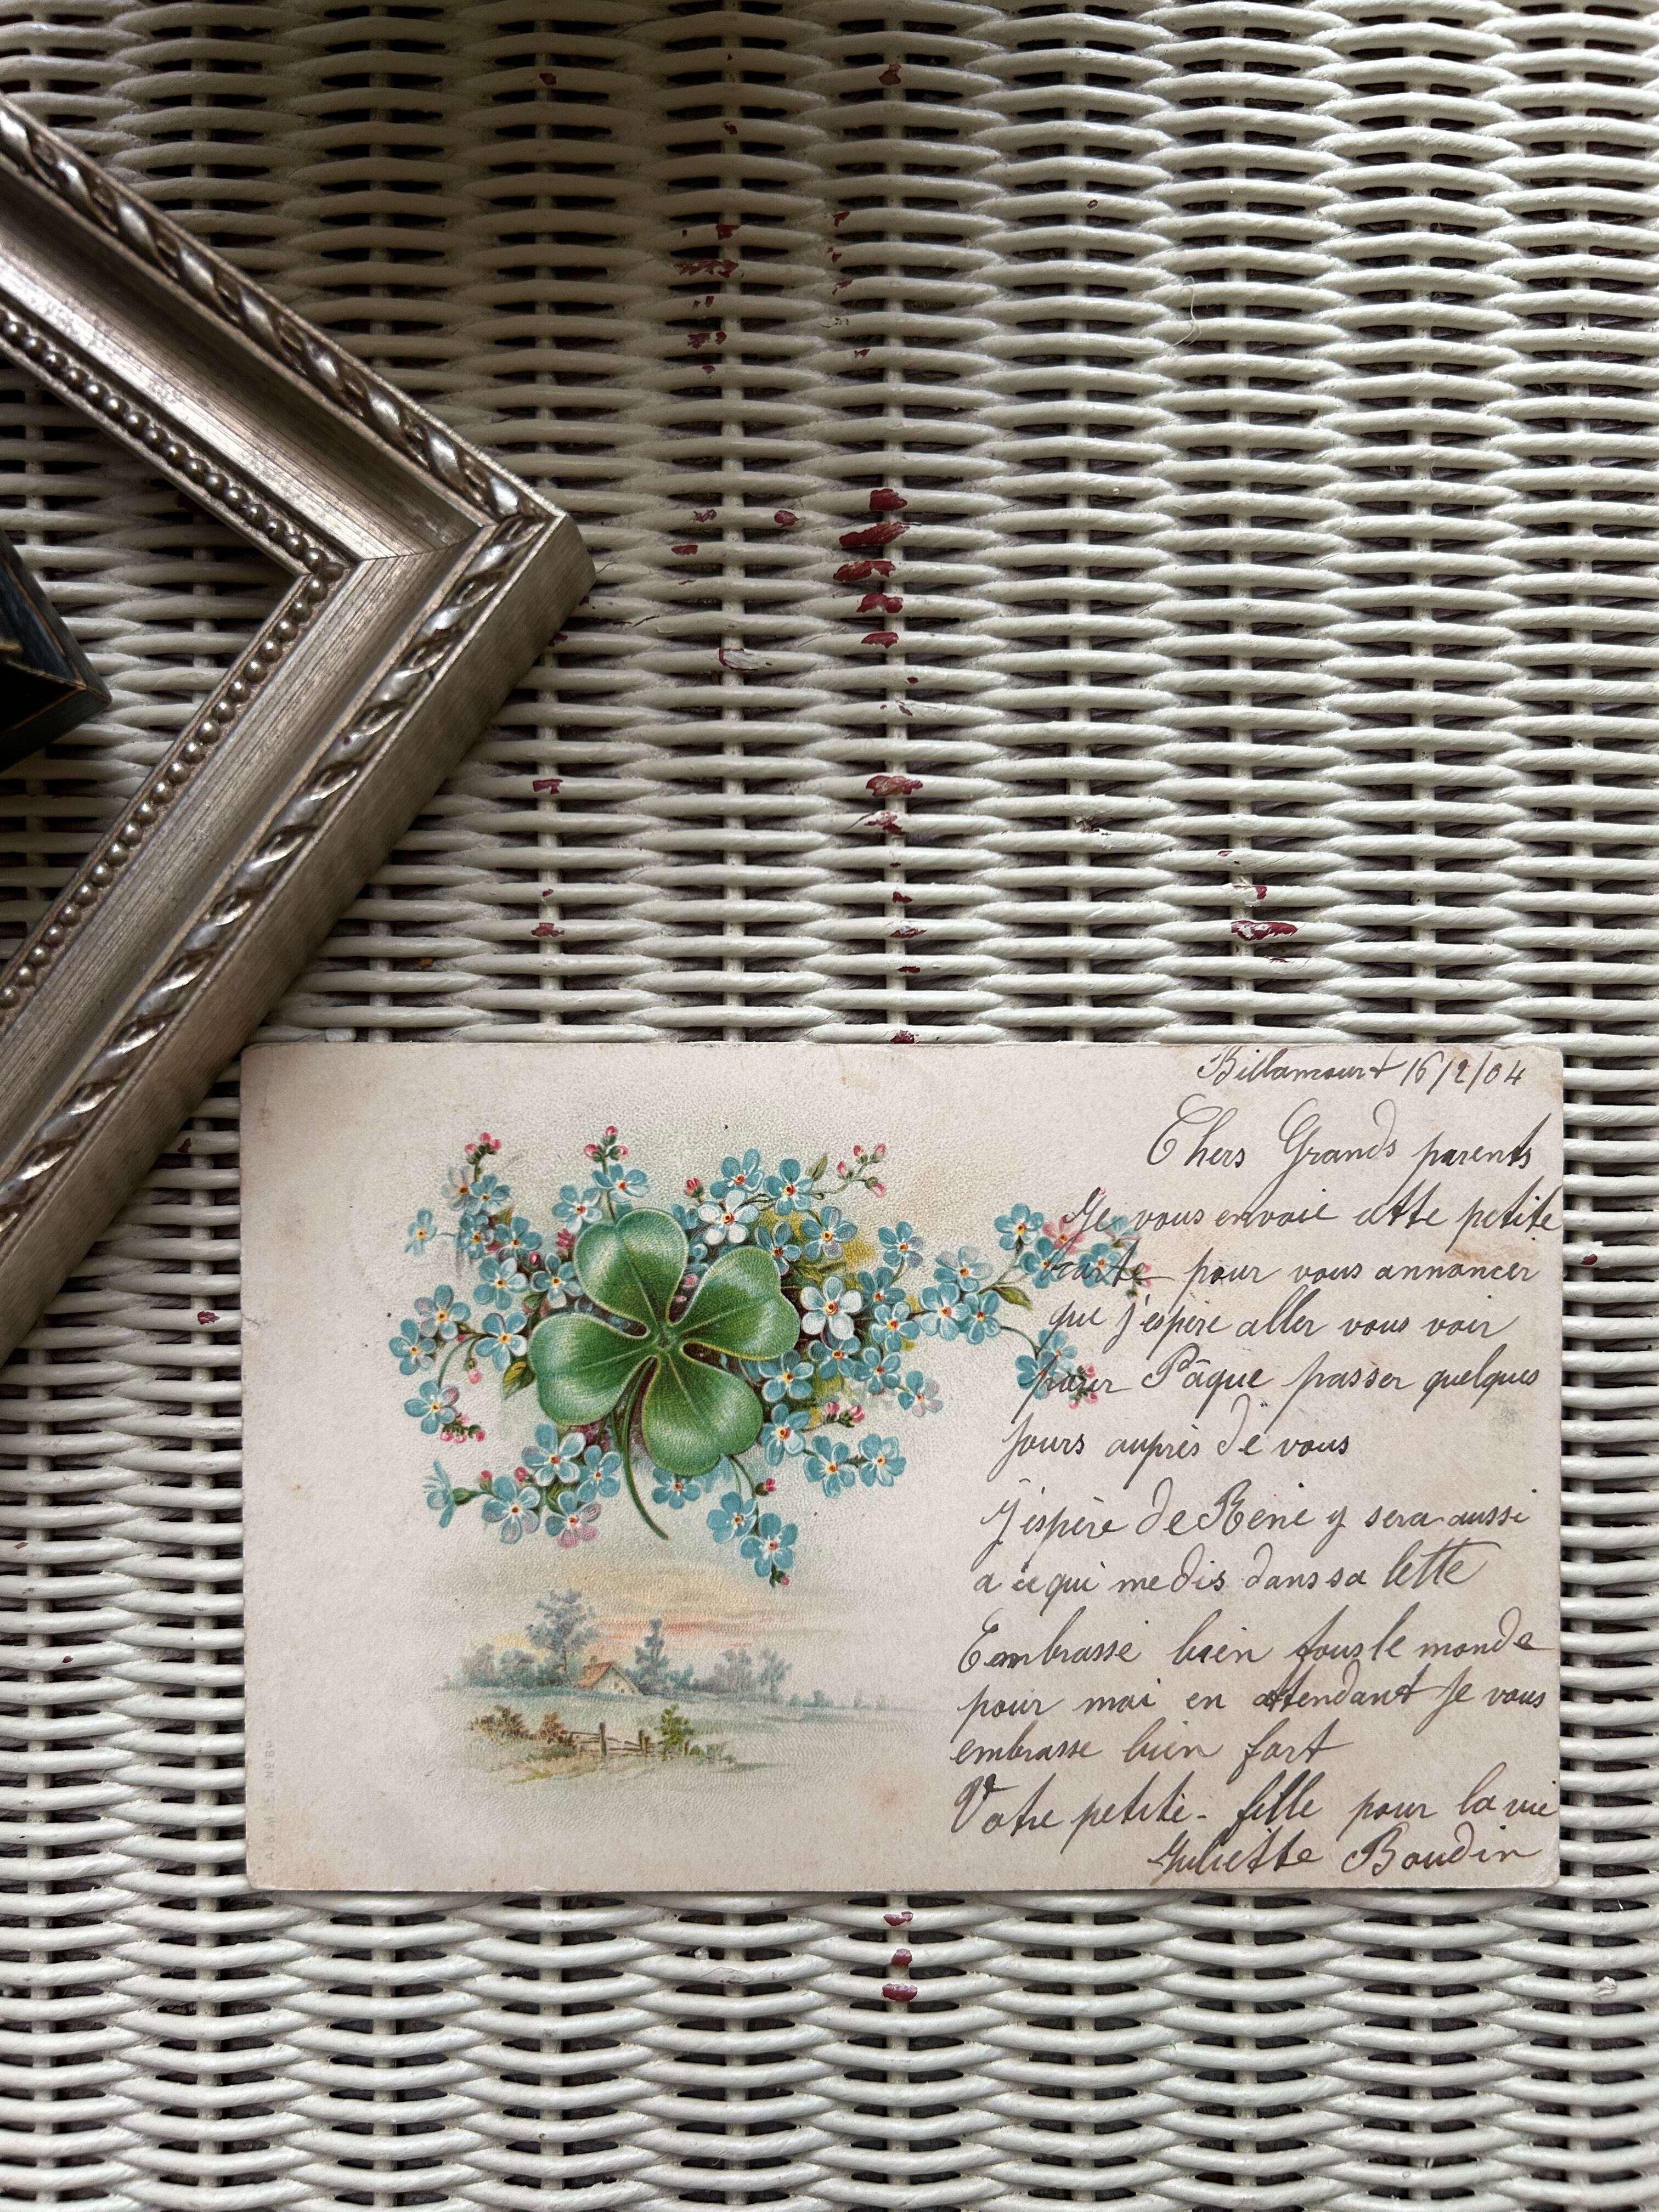 Billancourt 16/2/04
Chers Grands parents
Je vous envoie cette petite
carte pour vous annoncer
que j'espère aller vous voir
pour Pâque passer quelques
jours auprès de vous
J'espère de René y sera aussi
a ce qui me dis dans sa lette
Embrasse bien tous le monde
pour moi en attendant Je vous
embrasse bien fort
Votre petite-fille pour la vie
Juliette Boudin